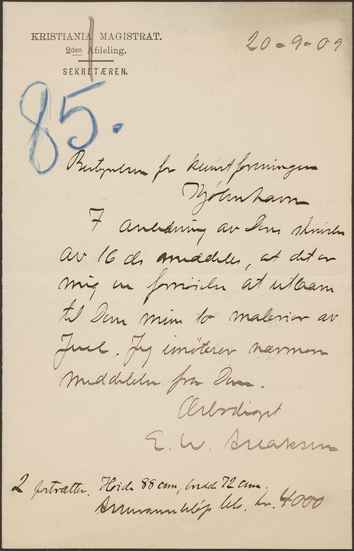 KRISTIANIA MAGISTRAT.
2den Afdeling.
SEKRETÆREN.
20-9-09
85.
Bestyrelsen for kunstforeningen
Kjøbenhavn
I anledning av Deres skrivelse
av 16 ds meddeles, at det er
mig en fornøielse at utlaane
til Dem mine to malerier av
Juel. Jeg imøteser nærmere
meddelelse fra Dem.
Ærbødigst
E. W.
2 portrætter. Høide 88 cm, bredde 72 cm.
Assurancebeløp kr. 4000